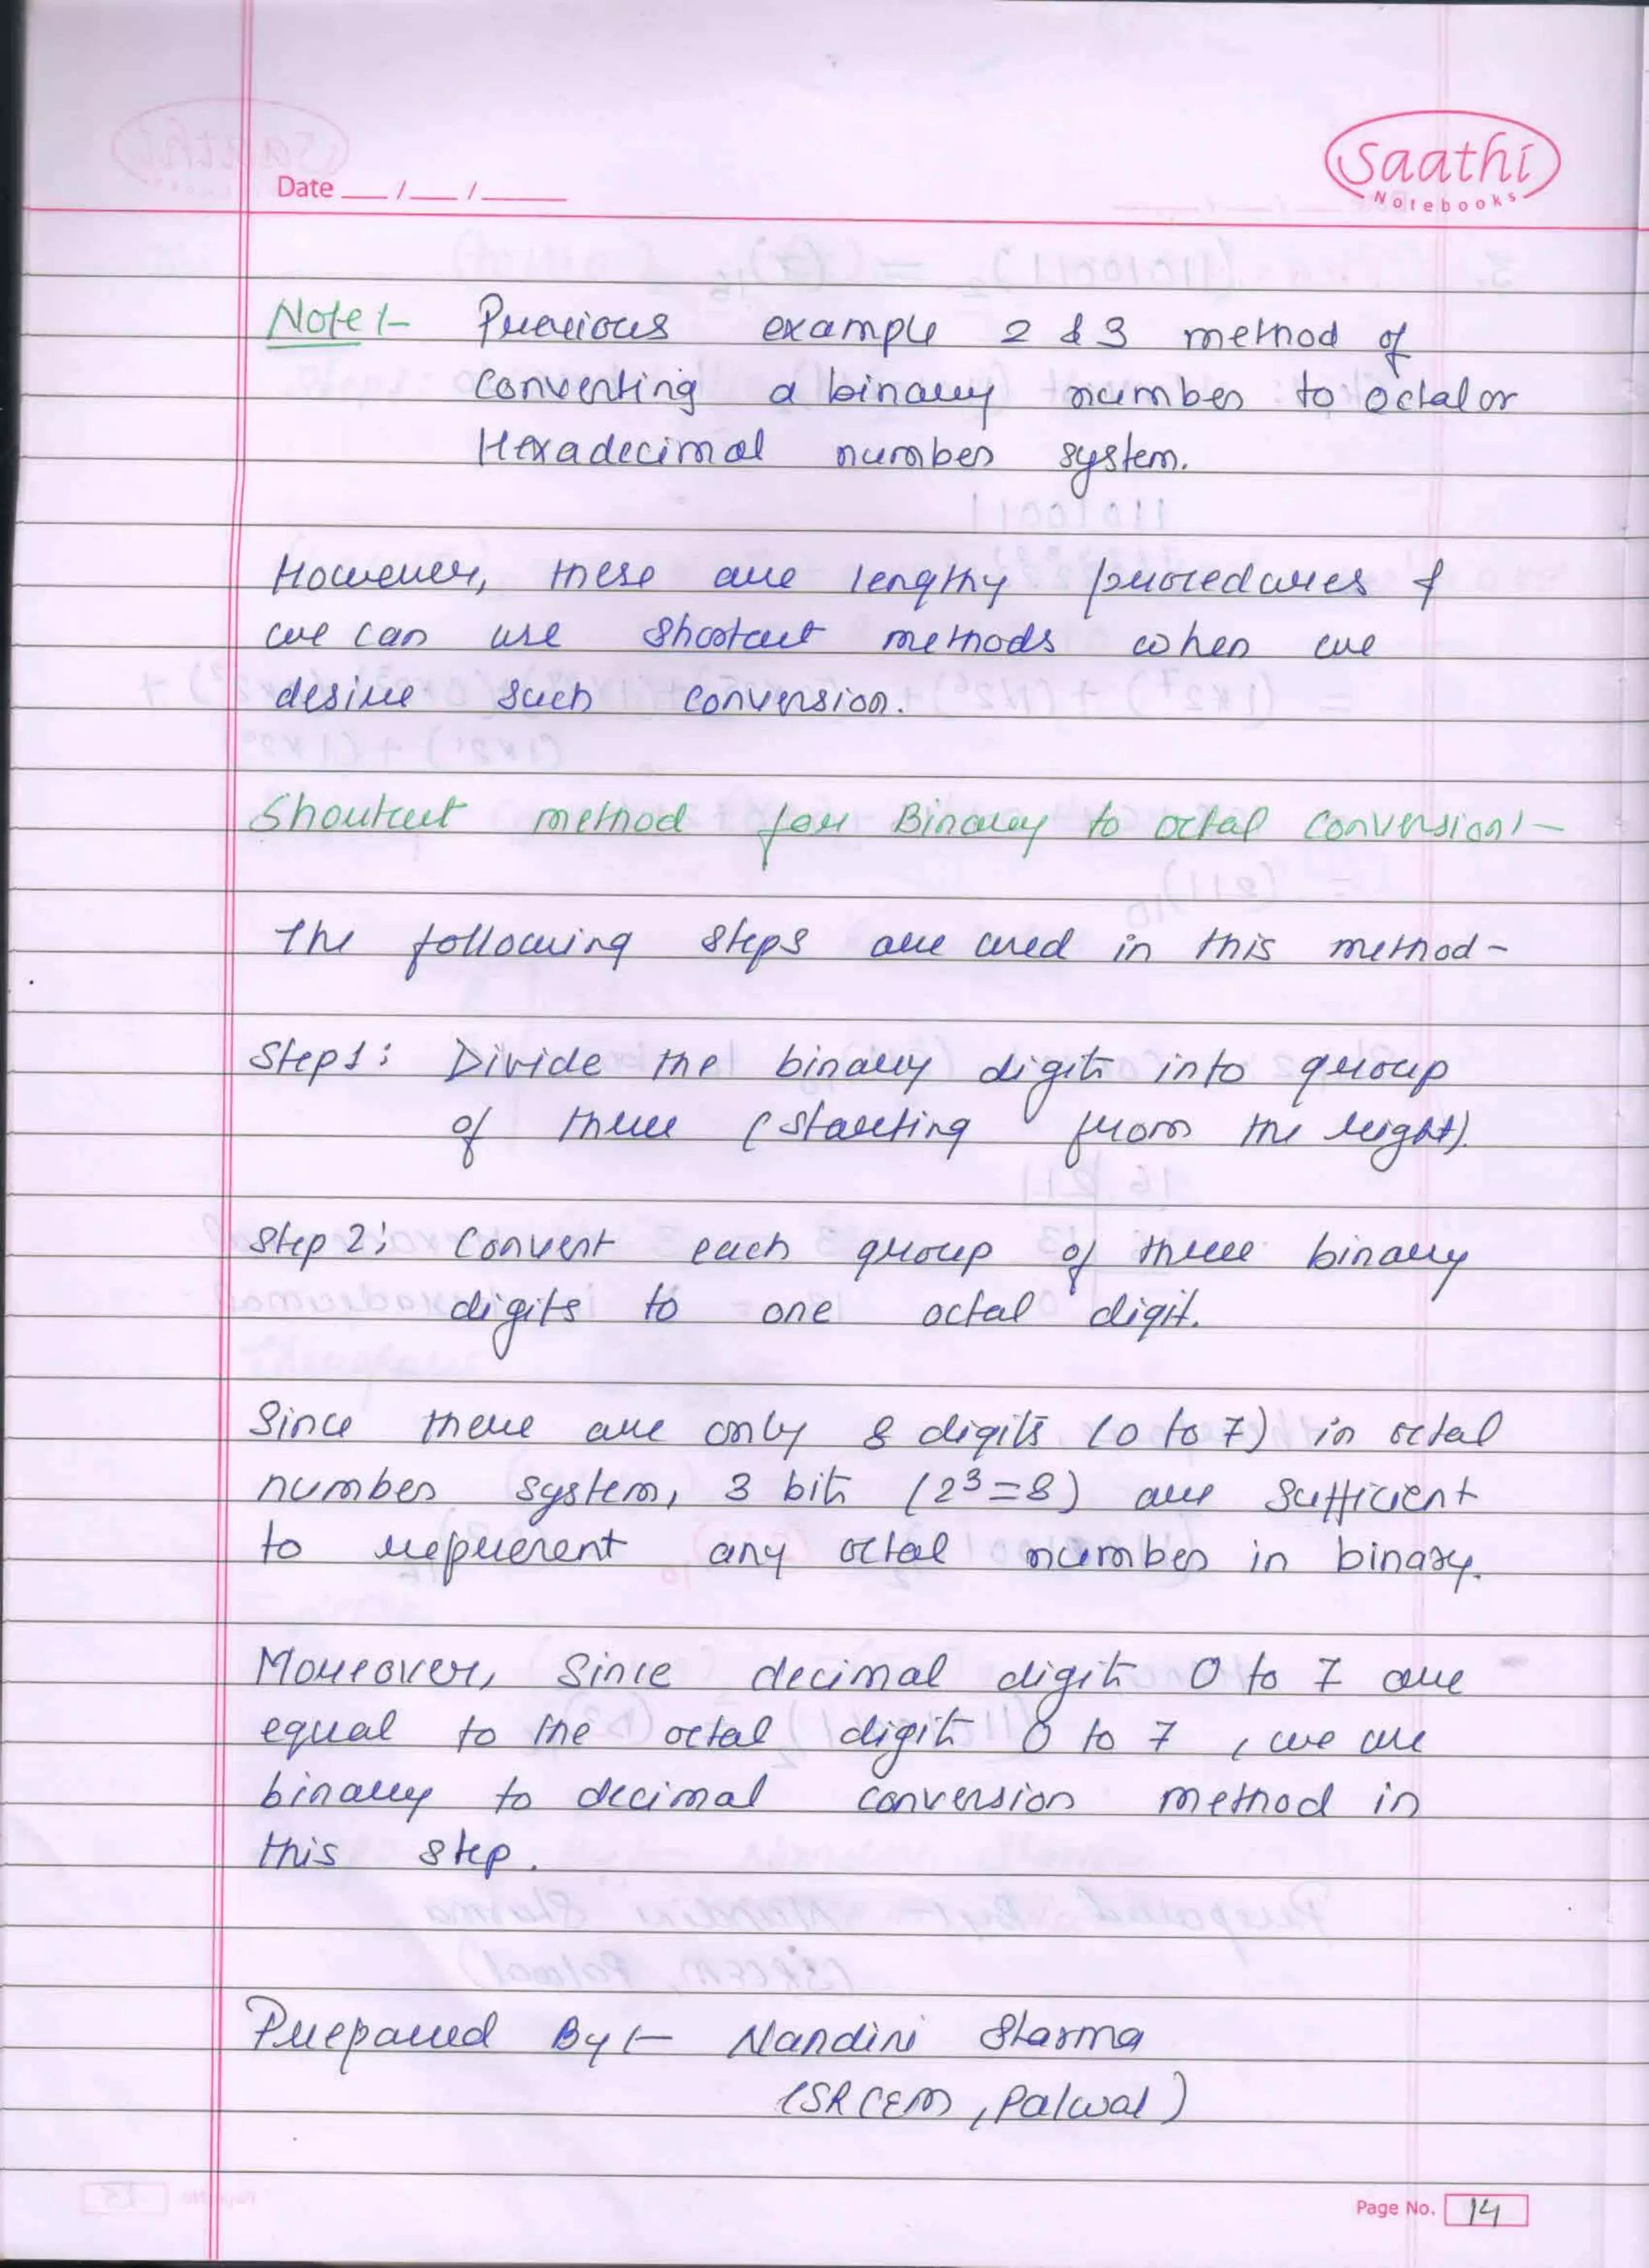 Saathi
Notebooks
Date __/__/____
Note :- Previous example 2 & 3 method of
converting a binary number to octal or
Hexadecimal number system.
However, these are lengthy procedures &
we can use shortcut methods when we
desire such conversion.
Shortcut method for Binary to octal conversion :-
The following steps are used in this method -
Step 1: Divide the binary digits into group
of three (starting from the right).
Step 2: Convert each group of three binary
digits to one octal digit.
Since there are only 8 digits (0 to 7) in octal
number system, 3 bits (2³=8) are sufficient
to represent any octal number in binary.
Moreover, since decimal digits 0 to 7 are
equal to the octal digits 0 to 7, we use
binary to decimal conversion method in
this step.
Prepared By :- Nandini Sharma
(SRCEM, Palwal)
Page No. 14